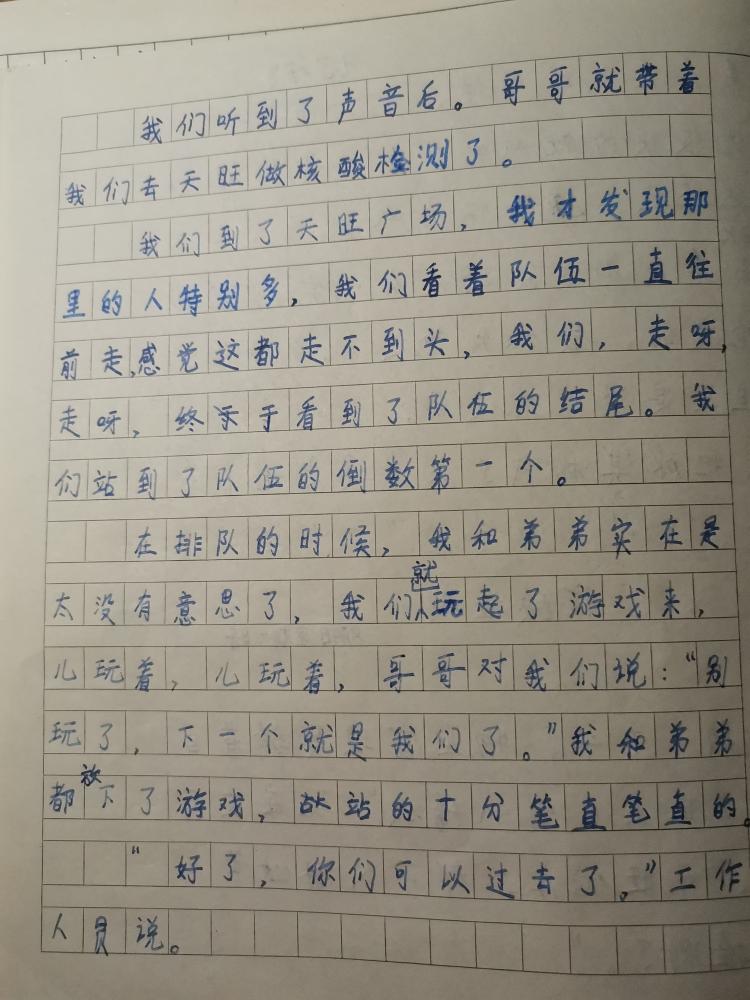 我们听到了声音后。哥哥就带着
我们去天旺做核酸检测了。
我们到了天旺广场，我才发现那
里的人特别多，我们看着队伍一直往
前走，感觉这都走不到头，我们，走呀，
走呀，终于于看到了队伍的结尾。我
们站到了队伍的倒数第一个。
在排队的时候，我和弟弟实在是
太没有意思了，我们就玩起了游戏来，
儿玩着，儿玩着，哥哥对我们说：“别
玩了，下一个就是我们了。”我和弟弟
都放下了游戏，站的十分笔直笔直的。
“好了，你们可以过去了。”工作
人员说。